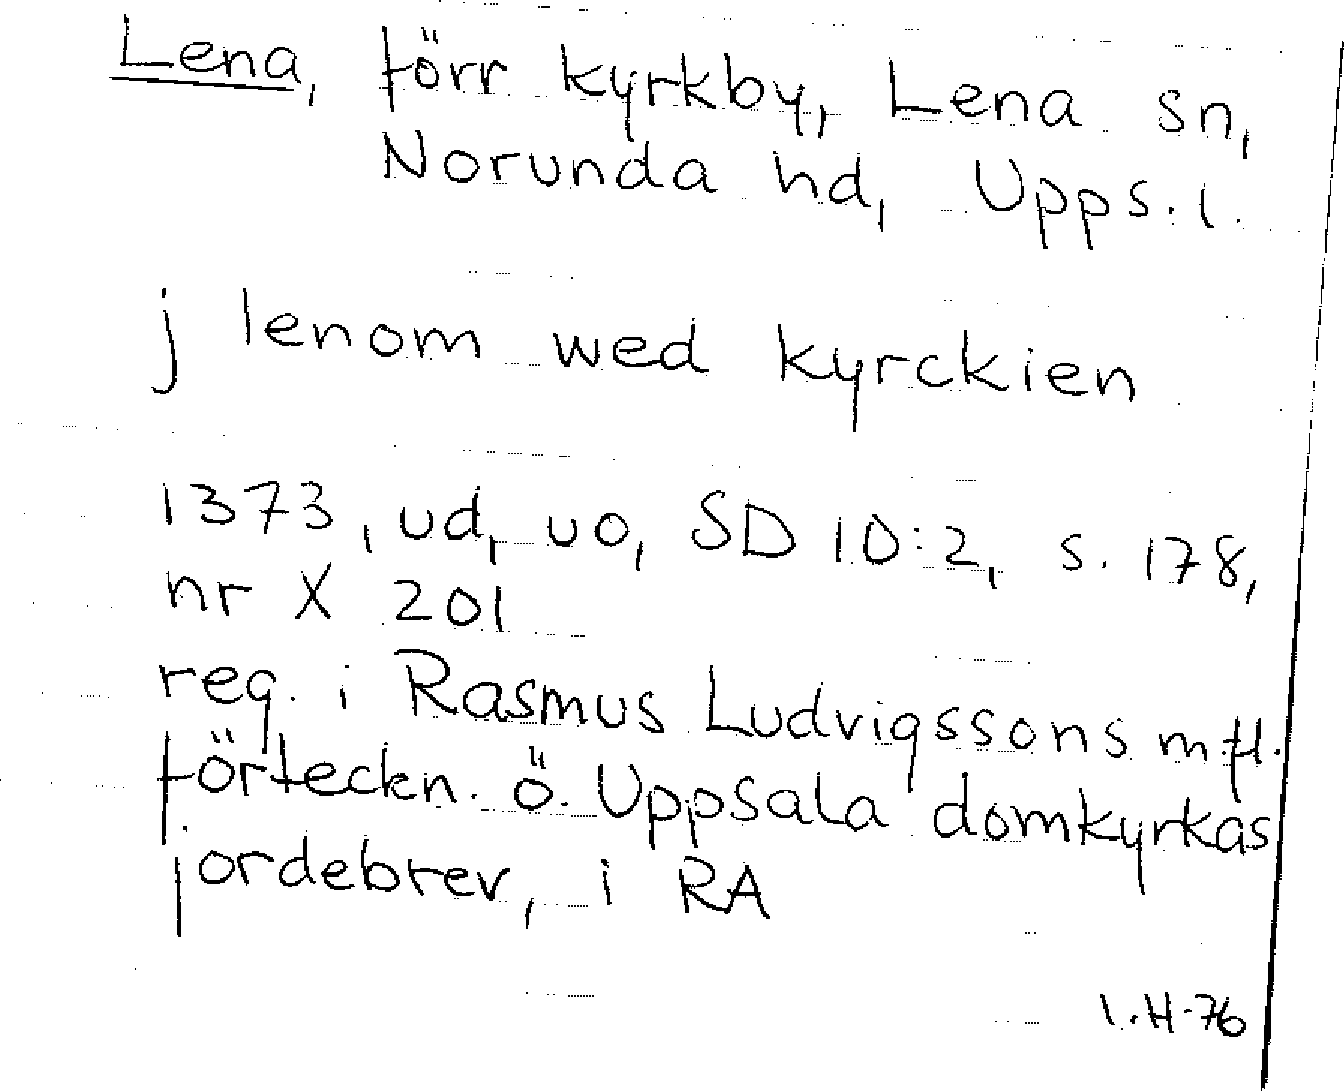 Lena, förr kyrkby, Lena sn,
Norunda hd, Upps. l.
j lenom wed kyrckien
1373, ud, uo, SD 10:2, s. 178,
nr X 201
reg. i Rasmus Ludvigssons m.fl.
förteckn. ö. Uppsala domkyrkas
jordebrev, i RA
I.H-76